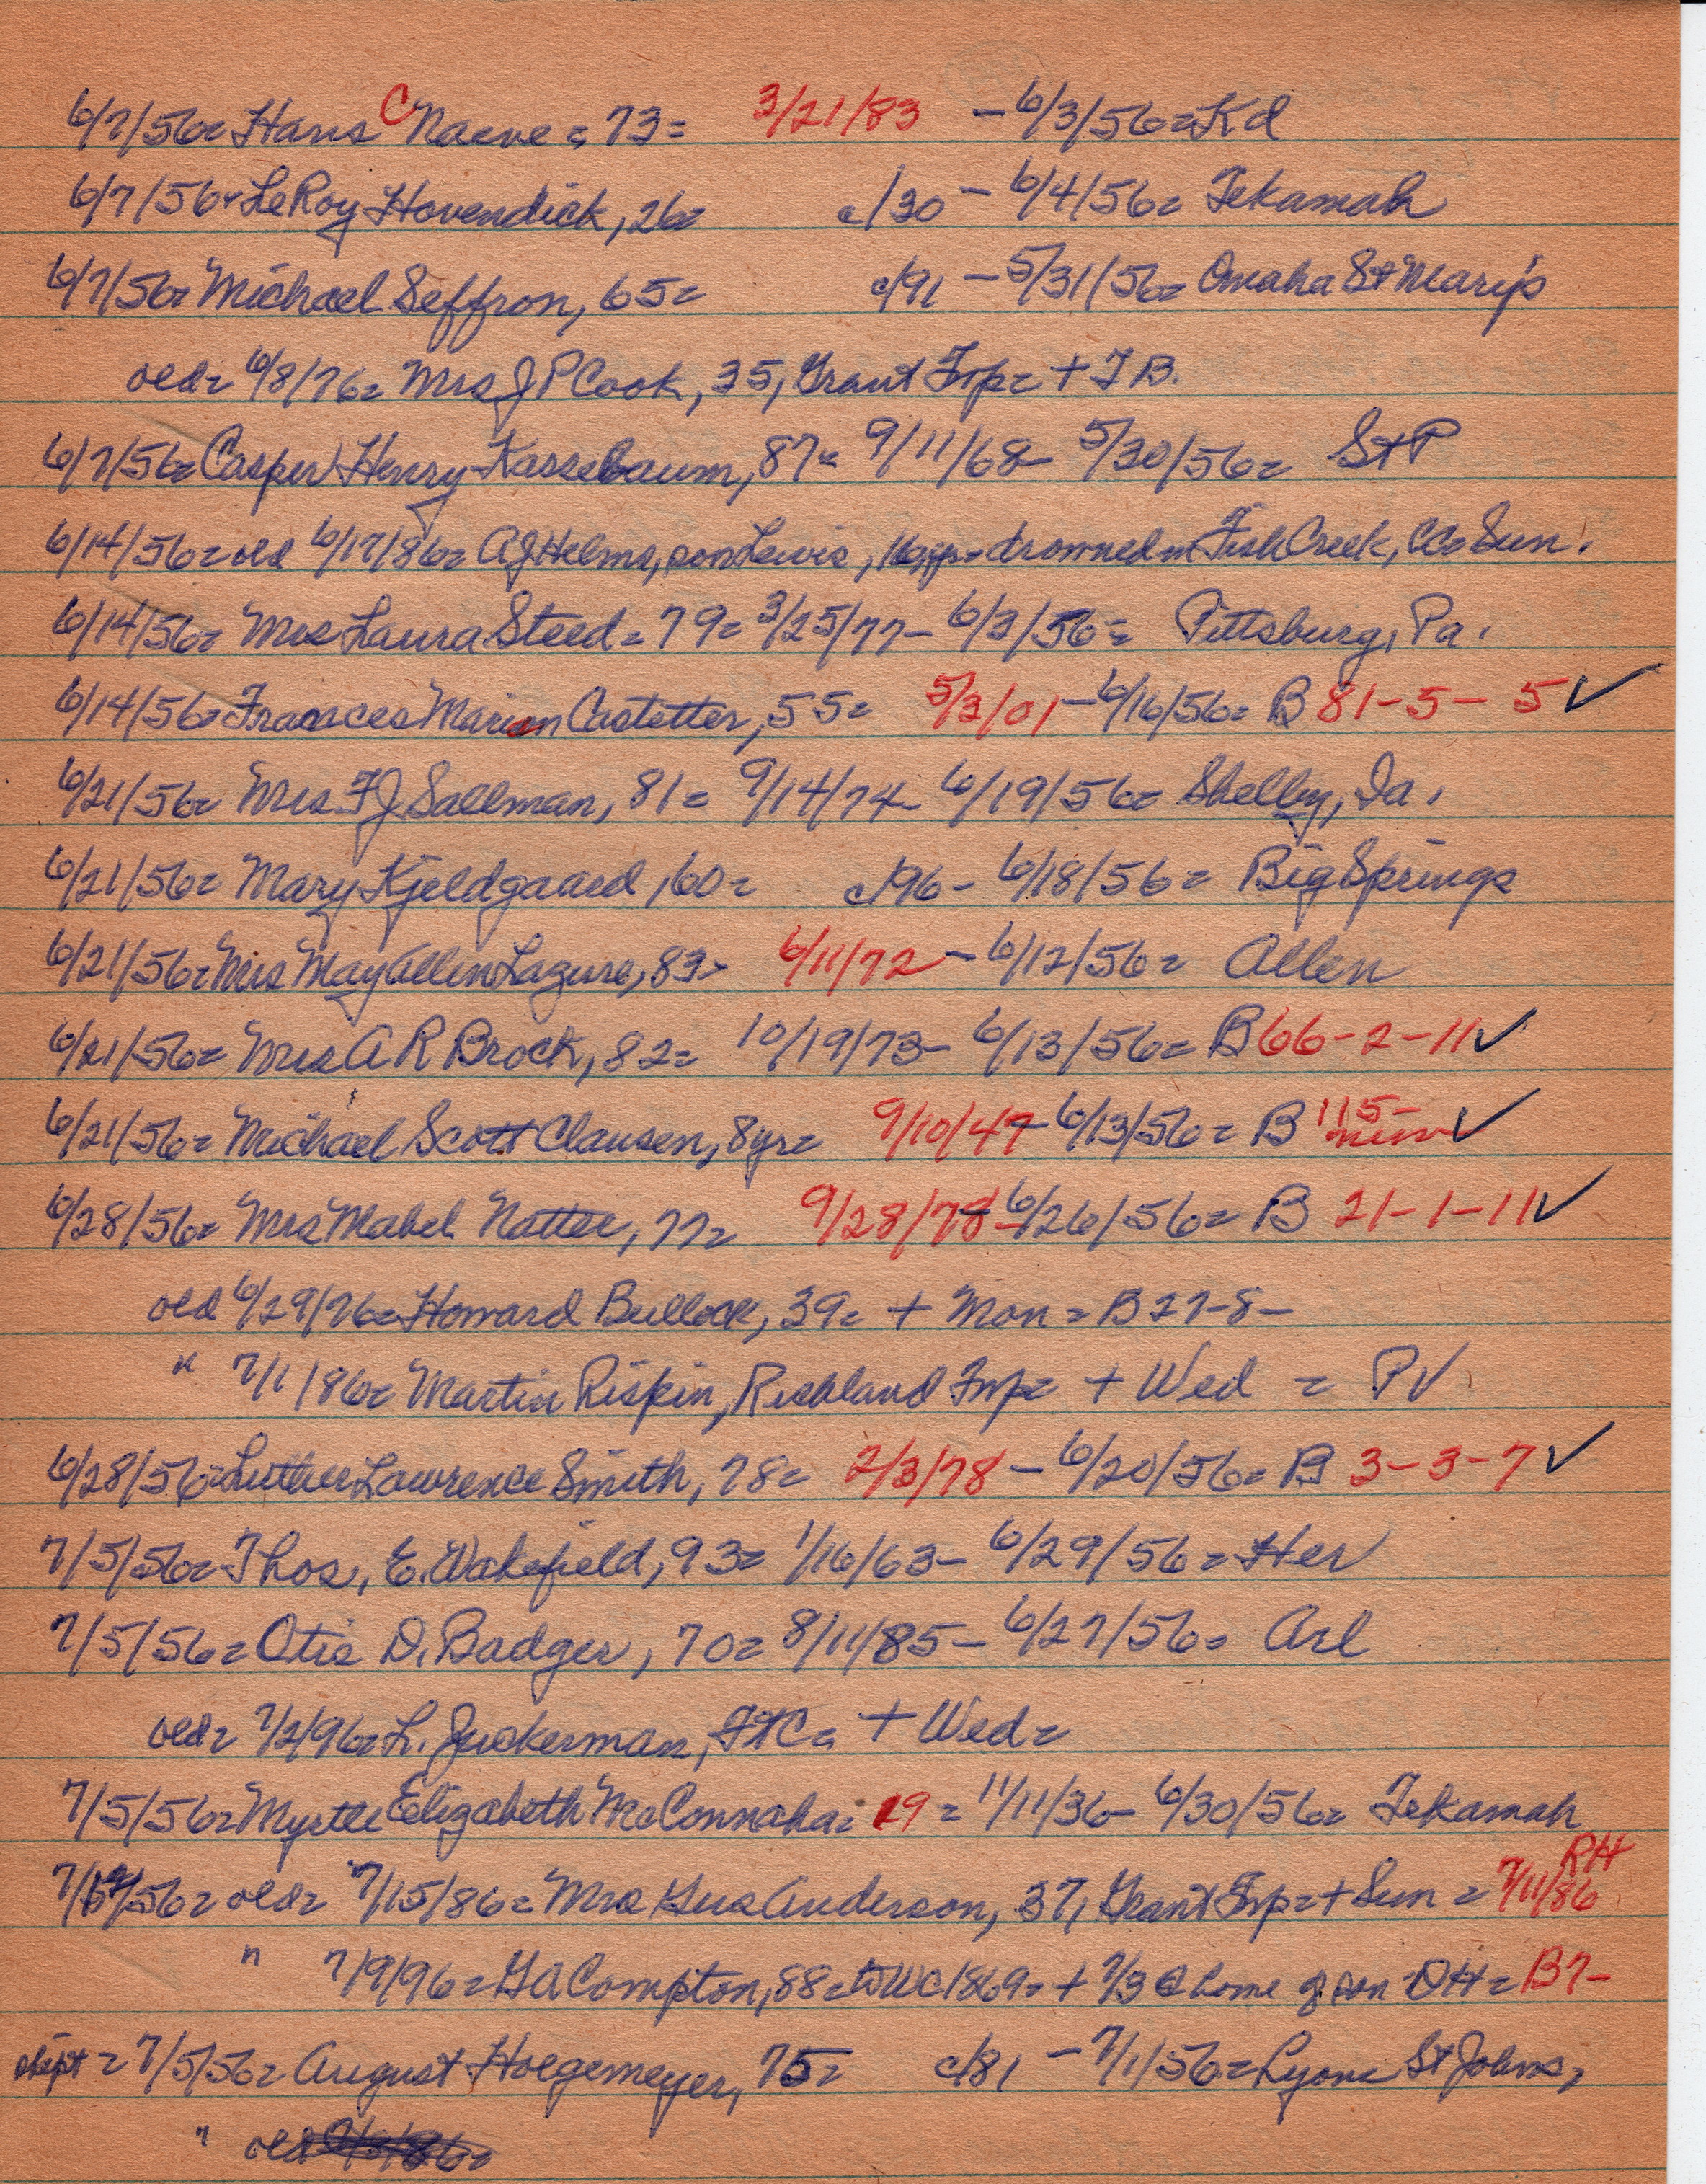 6/7/56= Hans C Naeve = 73= 3/21/83 - 6/3/56= Kd
6/7/56= LeRoy Hovendick, 26= c/30 - 6/4/56= Tekamah
6/7/56= Michael Seffron, 65= c/91 - 5/31/56= Omaha St Mary's
old= 6/8/76= Mrs J P Cook, 35, Grant Twp= + T B.
6/7/56= Casper Henry Kassebaum, 87= 9/11/68- 5/30/56= St P
6/14/56= old 6/17/86= A J Helms, son Lewis, 16yr= drowned in Fish Creek, CC= Sun.
6/14/56= Mrs Laura Steed= 79= 3/25/77- 6/3/56= Pittsburg, Pa.
6/14/56= Frances Marion Castetter, 55= 5/3/01- 6/16/56= B 81-5- 5✓
6/21/56= Mrs F J Sallman, 81= 9/14/74- 6/19/56= Shelby, Ia.
6/21/56= Mary Kjeldgaard, 60= c/96- 6/18/56= Big Springs
6/21/56= Mrs May Allen Lagure, 83= 6/11/72 - 6/12/56= Allen
6/21/56= Mrs A R Brock, 82= 10/19/73- 6/13/56= B 66-2-11✓
6/21/56= Michael Scott Clausen, 8yr= 9/10/47- 6/13/56= B 115- new✓
6/28/56= Mrs Mabel Natter, 77= 9/28/78- 6/26/56= B 21-1-11✓
old 6/29/76= Howard Bullock, 39= + Mon = B 27-8-
" 7/1/86= Martin Rispin, Richland Twp= + Wed = PV
6/28/56= Luther Lawrence Smith, 78= 2/3/78 - 6/20/56= B 3-3-7✓
7/5/56= Thos. E. Wakefield, 93= 1/16/63- 6/29/56= Her
7/5/56= Otis D. Badger, 70= 8/11/85- 6/27/56= Arl
old= 7/2/96= L. Juckerman, FtC= + Wed=
7/5/56= Myrtle Elizabeth McConnaha= 19 = 11/11/36- 6/30/56= Tekamah
7/12/56= old= 7/15/86= Mrs Gus Anderson, 37, Grant Twp= + Sun = 7/11/86 RH
" 7/9/96= G A Compton, 88= to WC 1869= + 7/3 @ home of son D H= B7-
skipt= 7/5/56= August Hoegemeyer, 75= c/81 - 7/1/56= Lyons St Johns,
" old